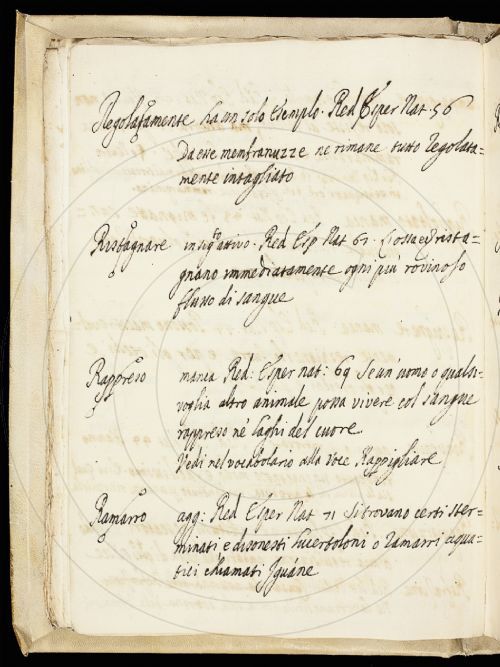 Regolatamente ha un solo Esemplo. Red Esper Nat. 56
Da esse ne rimane tutto regolata=
mente intagliato
Ristagnare in sig: attivo. Red Esp Nat 61. rista=
gnano immediatamente ogni più rovinoso
flusso di sangue
Rappreso manca Red: Esper nat: 69 Se un' uomo o qualsi=
voglia altro animale possa vivere col sangue
rappreso ne' laghi del cuore.
Vedi nel vocabolario alla voce Rappigliare
Ramarro agg: Red Esper Nat 71 Si trovano certi ster=
minati e disonesti Lucertoloni o ramarri acqua=
tici chiamati Iguáne